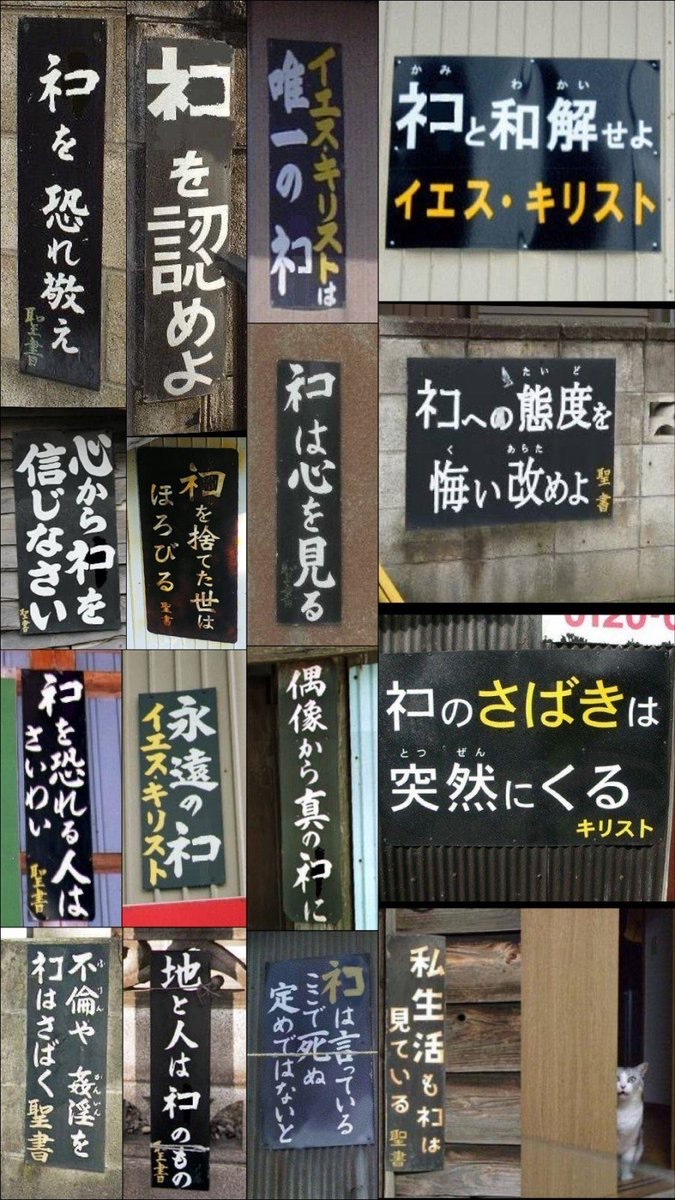 ネコを恐れ敬え
聖書
ネコを認めよ
イエス・キリストは
唯一のネコ
かみ わかい
ネコと和解せよ
イエス・キリスト
ネコは心を見る
聖書
たいど
ネコへの態度を
く あらた
悔い改めよ
聖書
心からネコを
信じなさい
聖書
ネコを捨てた世は
ほろびる
聖書
ネコを恐れる人は
さいわい
聖書
永遠のネコ
イエス・キリスト
偶像から真のネコに
0120-
ネコのさばきは
とつ ぜん
突然にくる
キリスト
ふりん かんいん
不倫や 姦淫を
ネコはさばく
聖書
地と人はネコのもの
聖書
ネコは言っている
ここで死ぬ
定めではないと
私生活もネコは
見ている
聖書